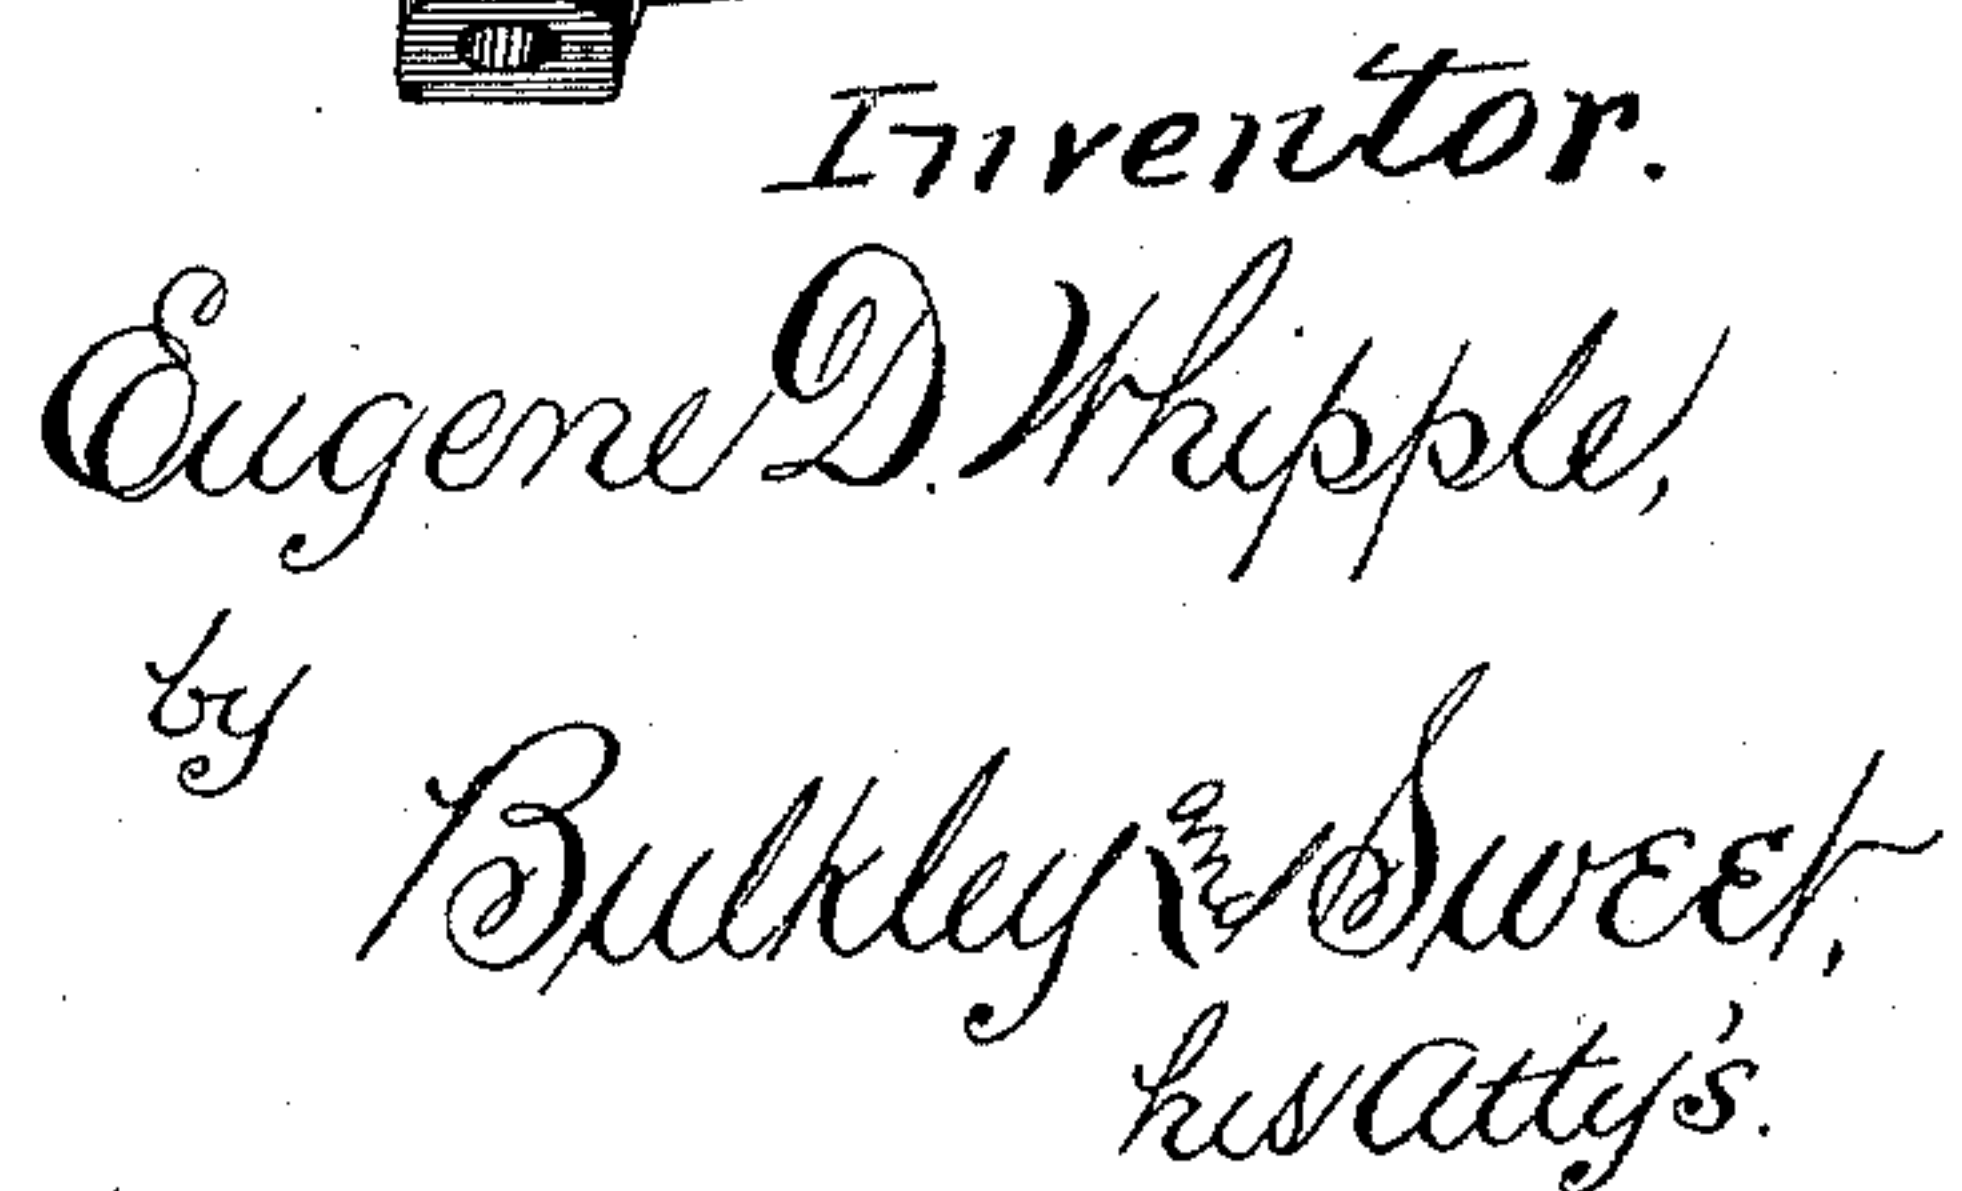 Inventor.
Eugene D. Whipple,
by
Bulkley and Sweet,
his Atty's.